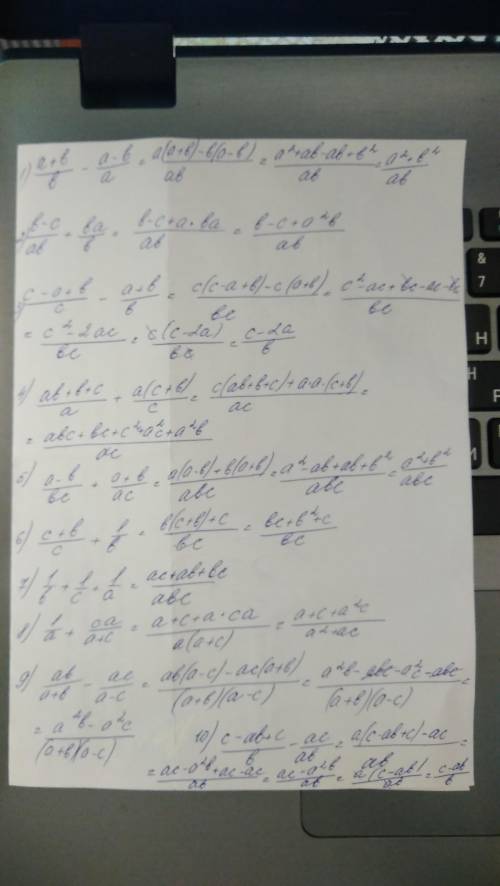 1) (a+b)/b - (a-b)/a = (a(a+b)-b(a-b))/ab = (a²+ab-ab+b²)/ab = (a²+b²)/ab
(b-c)/ab + ba/b = (b-c+a·ba)/ab = (b-c+a²b)/ab
3) (c-a+b)/c - (a+b)/b = (c(c-a+b)-c(a+b))/bc = (c²-ac+bc-ac-bc)/bc
= (c²-2ac)/bc = c(c-2a)/bc = (c-2a)/b
4) (ab+b+c)/a + a(c+b)/c = (c(ab+b+c)+a·a·(c+b))/ac =
= (abc+bc+c²+a²c+a²b)/ac
5) (a-b)/bc + (a+b)/ac = (a(a-b)+b(a+b))/abc = (a²-ab+ab+b²)/abc = (a²+b²)/abc
6) (c+b)/c + 1/b = (b(c+b)+c)/bc = (bc+b²+c)/bc
7) 1/b + 1/c + 1/a = (ac+ab+bc)/abc
8) 1/a + ca/(a+c) = (a+c+a·ca)/a(a+c) = (a+c+a²c)/(a²+ac)
9) ab/(a+b) - ac/(a-c) = (ab(a-c)-ac(a+b))/(a+b)(a-c) = (a²b-abc-a²c-abc)/(a+b)(a-c) =
= (a²b-a²c)/(a+b)(a-c)
10) (c-ab+c)/b - ac/ab = (a(c-ab+c)-ac)/ab =
= (ac-a²b+ac-ac)/ab = (ac-a²b)/ab = a(c-ab)/ab = (c-ab)/b
&
7